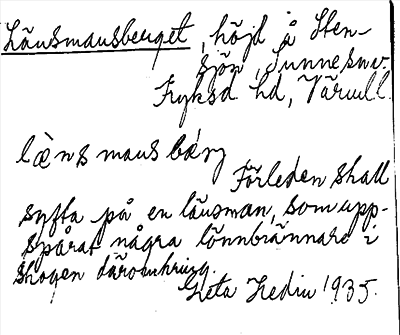 Länsmansberget, höjd å Sten-
sjön, Sunne sn.
Fryksd hd, Värml.
læ̀ns mans bárj
Förleden skall
syfta på en länsman, som upp-
spårat några lönnbrännare i
skogen däromkring.
Greta Hedin 1935.